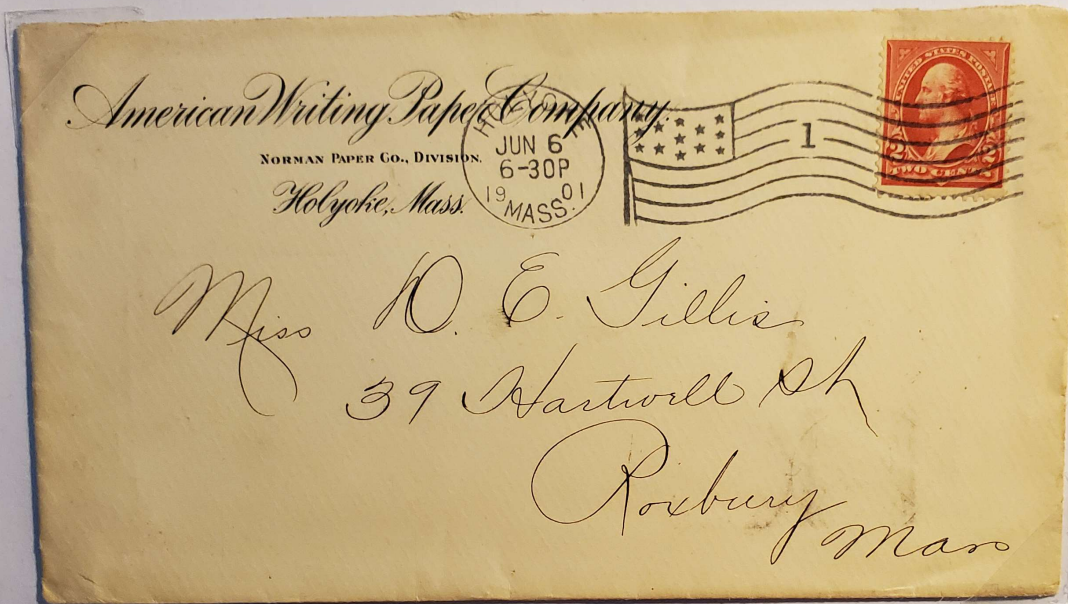 American Writing Paper Company.
NORMAN PAPER CO., DIVISION.
Holyoke, Mass.
HOLYOKE
JUN 6
6-30P
19 01
MASS.
1
UNITED STATES POSTAGE
2 2
TWO CENTS
Miss D. E. Gillis
39 Hartwell St
Roxbury
Mass